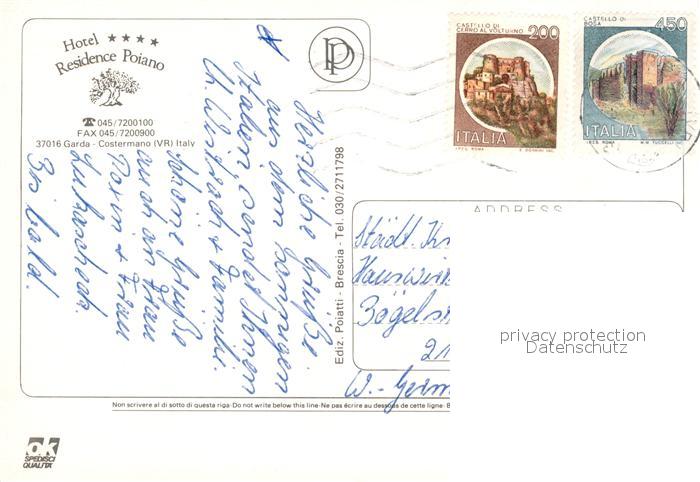 Hotel ★★★★
Residence Poiano
☎ 045/7200100
FAX 045/7200900
37016 Garda - Costermano (VR) Italy
PP
CASTELLO DI
CERRO AL VOLTURNO
200
ITALIA
I.P.Z.S. ROMA
CASTELLO DI
BOSA
450
ITALIA
I.P.Z.S. ROMA
Herzliche Grüße
aus dem sonnigen
Italien sendet Ihnen
Familie
Schöne Grüße
auch an Frau
Frau
Bis bald.
Ediz. Poiatti - Brescia - Tel. 030/2711798
ADDRESS
Städt.
W.-Germ
privacy protection
Datenschutz
Non scrivere al di sotto di questa riga-Do not write below this line-Ne pas écrire au dessous de cette ligne-B
OK
SPEDISCI
QUALITÀ